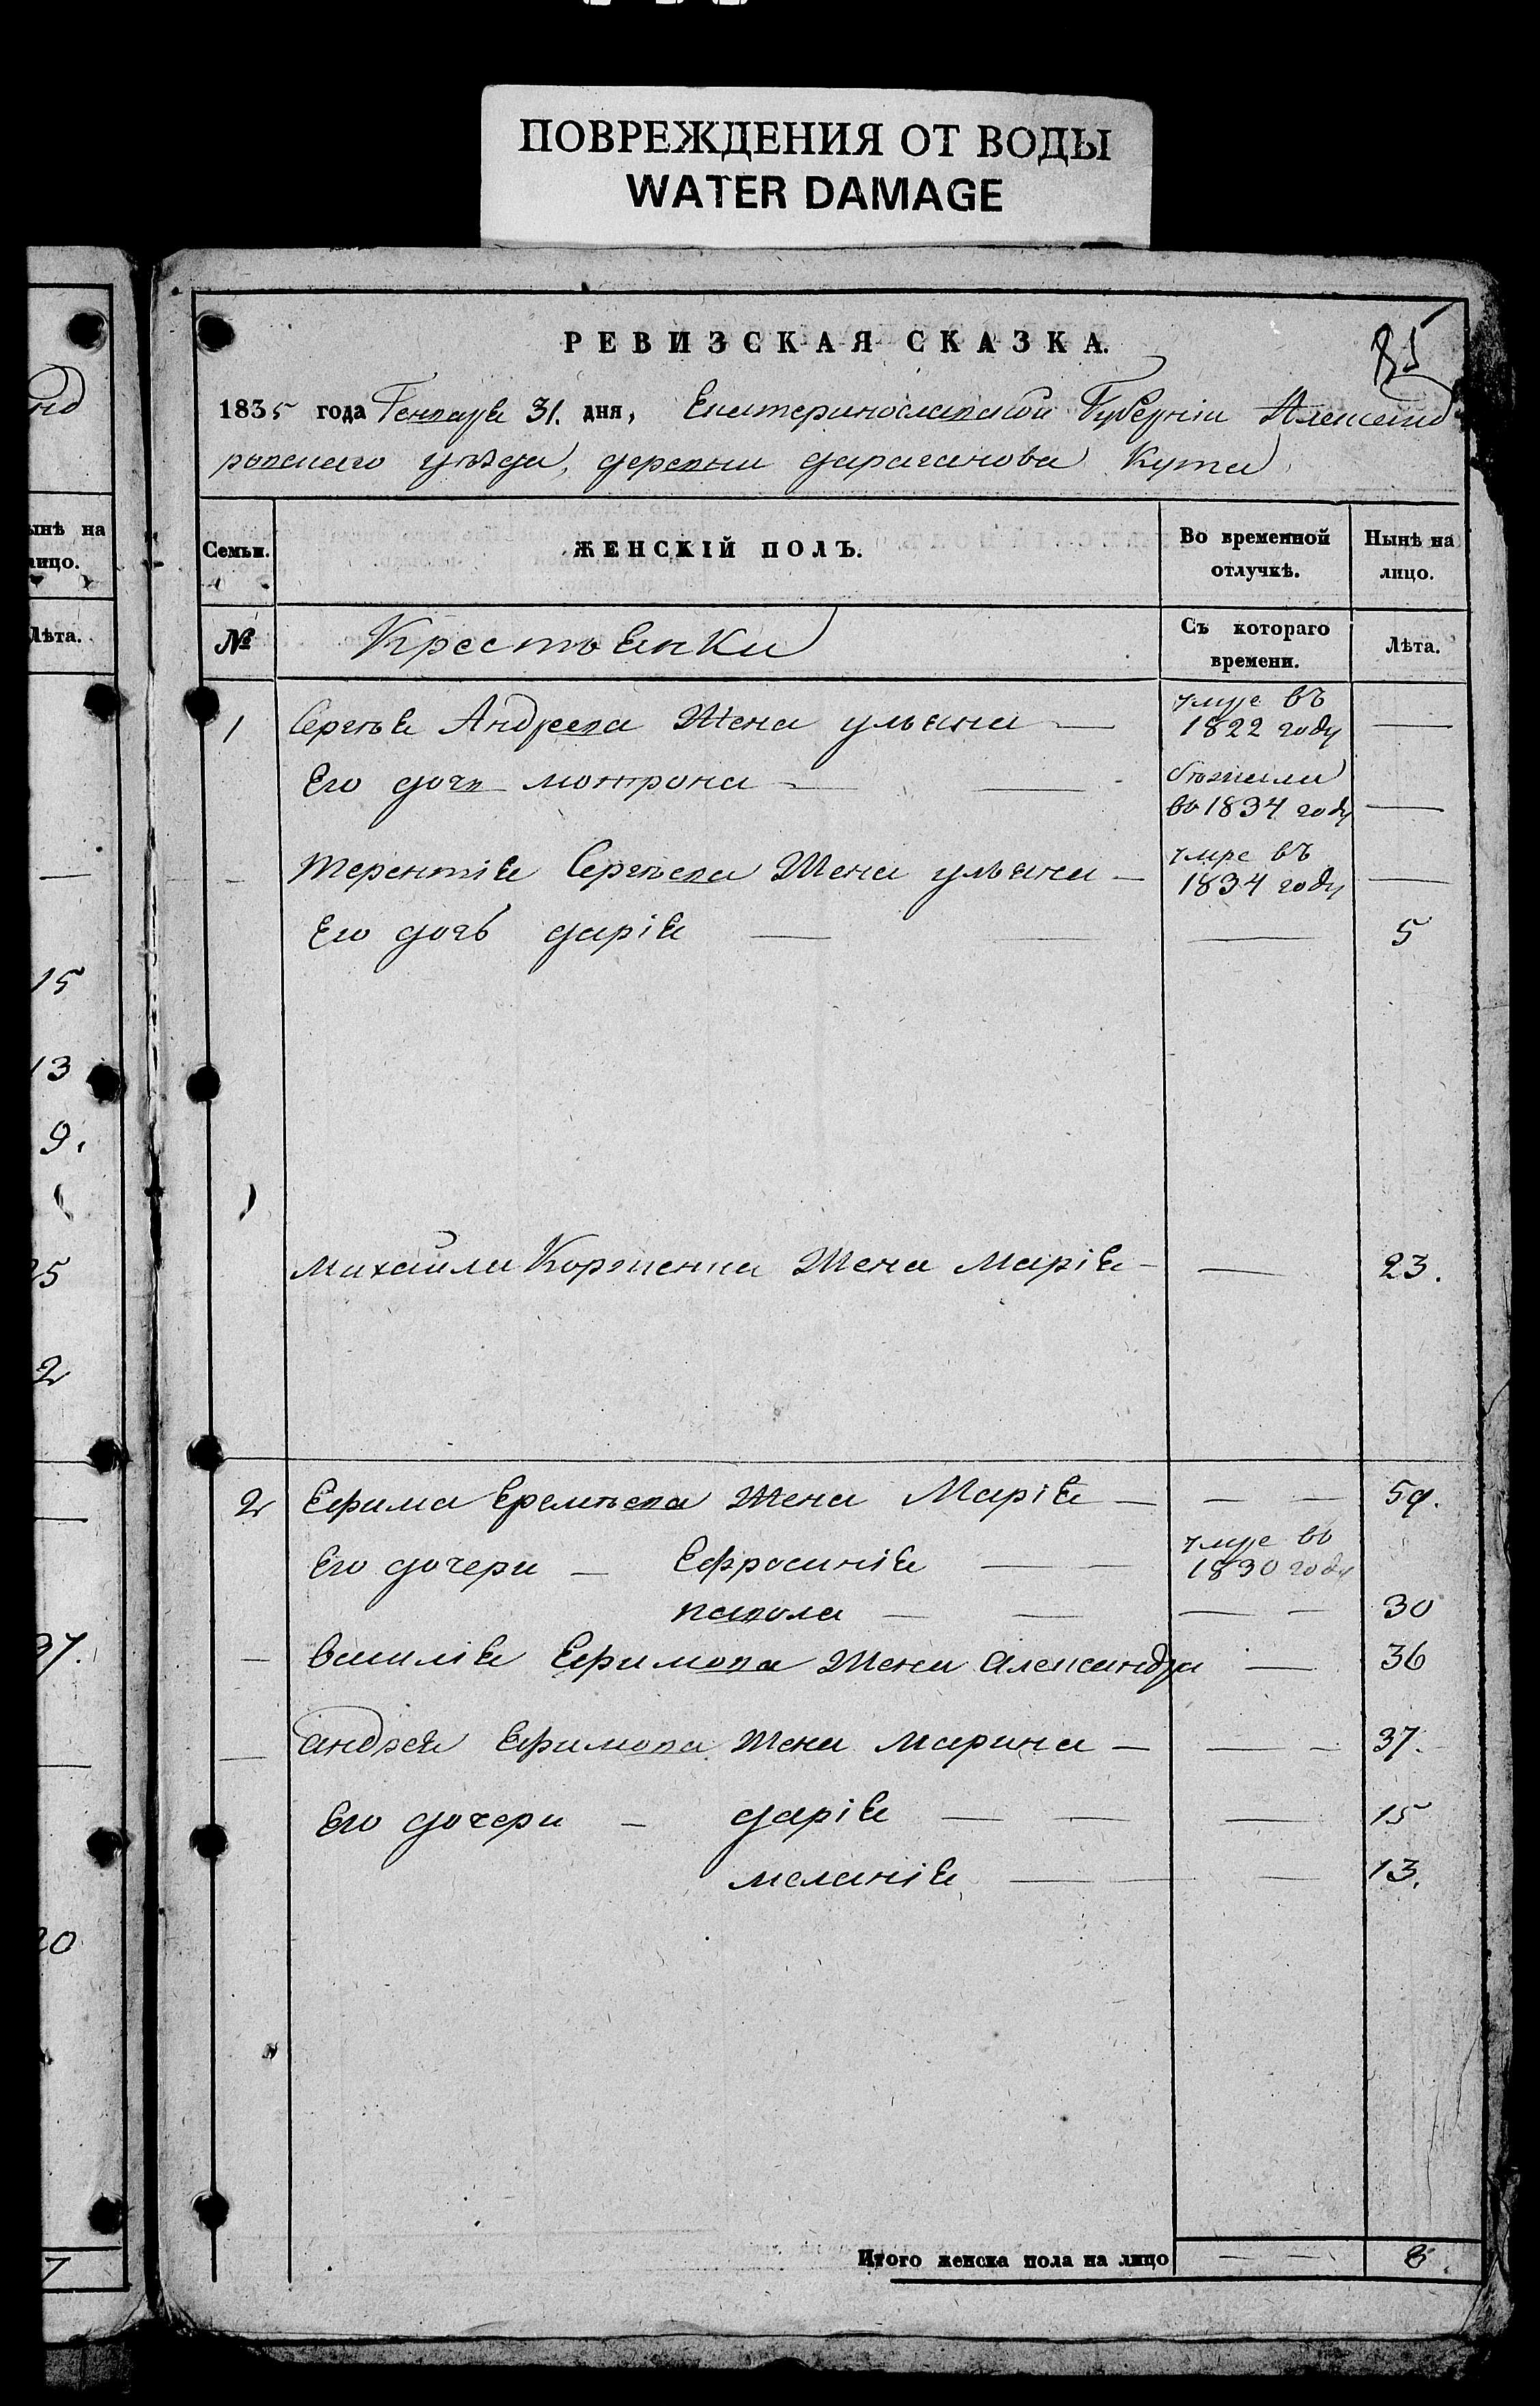 ПОВРЕЖДЕНИЯ ОТ ВОДЫ
WATER DAMAGE
РЕВИЗСКАЯ СКАЗКА.
85
1835 года Генваря 31. дня, Екатеринославской Губерніи Александ
ровскаго уѣзда, деревни дараганова Кута
Семьи.
ЖЕНСКІЙ ПОЛЪ.
Во временной отлучкѣ.
Нынѣ на лицо.
№
Крестьянки
Съ котораго времени.
Лѣта.
1 Сергѣя Андреева Жена ульяна — умре въ 1822 году —
Его дочь мотрона — бѣжали во 1834 году —
— терентія Сергѣева Жена ульяна — умре въ 1834 году —
Его дочь дарія — — — 5
Михайла Корженка Жена Марія — — 23.
2 Ефима Еремѣева Жена Марія — — — 59.
Его дочери — Ефросинія — — умре во 1830 году
павола — — — — 30
— василія Ефимова Жена александра — 36
— андрея Ефимова Жена марина — — — 37.
Его дочери — дарія — — — 15
меланія — — — 13.
Итого женска пола на лицо — — 8.
ынѣ на
лицо.
Лѣта.
15
13
9.